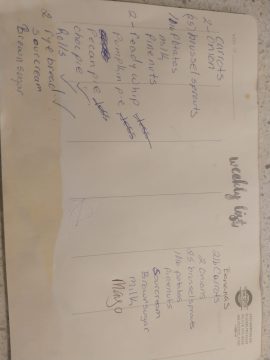 Carrots
2-Onion
(57) brussel sprouts
10lb Potatoes
milk
Pine nuts
2-Ready whip
Pumpkin pie
Pecan pie
choc pie
Rolls ✓
2 rye bread
Sourcream
Brown sugar
weekly list
Bananas
2lb Carrots
2 onions
brussel sprouts
10lb potatoes
Pinenuts
Sourcream
Brown sugar
milk
Mayo